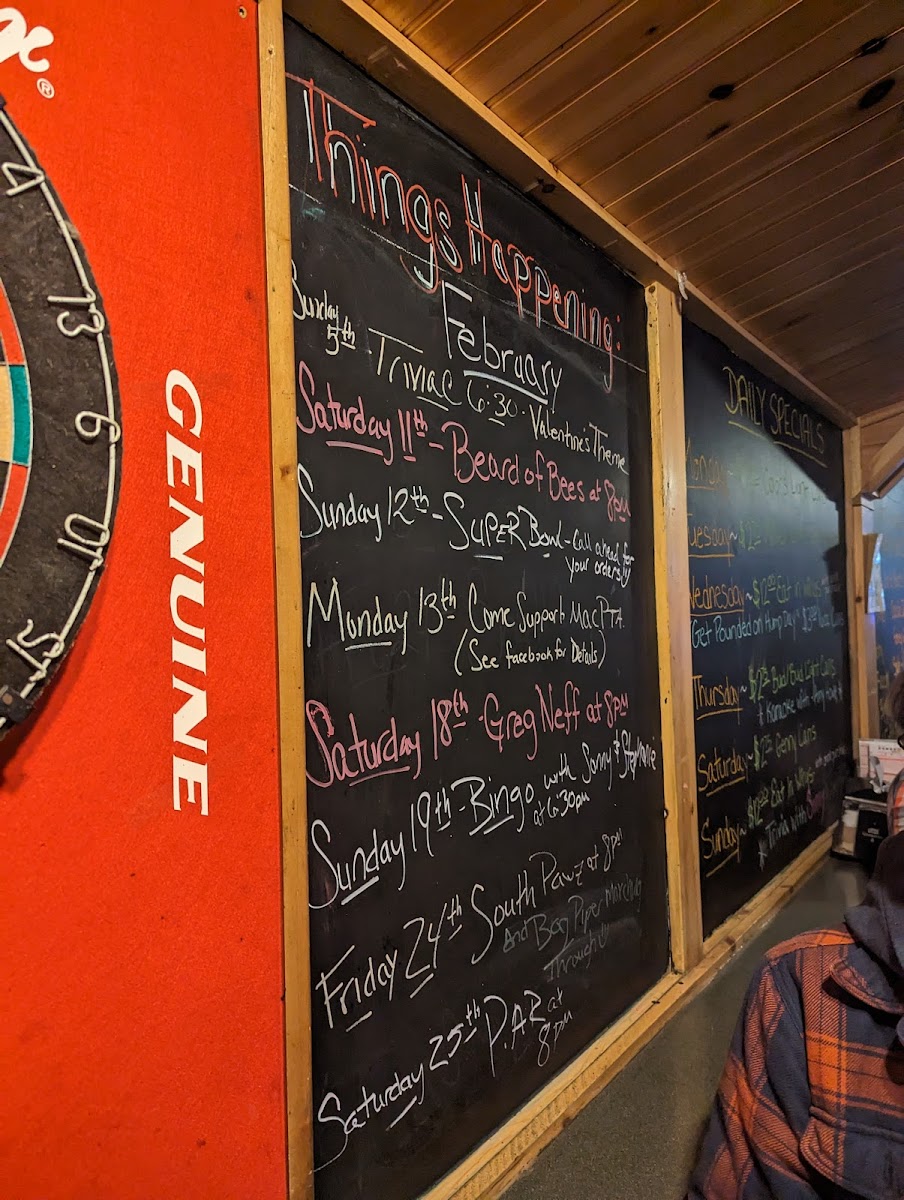 ®
GENUINE
4
13
6
10
15
Things Happening:
February
Sunday 5th Trivia 6:30 - Valentine's Theme
Saturday 11th - Beard of Bees at 8pm
Sunday 12th - SUPER Bowl - Call ahead for
your orders!!
Monday 13th Come Support
(See facebook for Details)
Saturday 18th - Greg Neff at 8pm
Sunday 19th - Bingo with Sonny & Stephanie
at 6:30pm
Friday 24th South Pawz at 8pm
And Bag Piper Marching
Through!!
Saturday 25th P.A.R at
8pm
DAILY SPECIALS
Monday
Tuesday ~ $2
Wednesday ~ $12.00 Eat In Wings
Get Pounded on Hump Day
Thursday ~ $2.75 Bud/Bud Light Cans
Saturday ~ $2.75 Genny Cans
Sunday ~ $12.00 Eat In Wings
* Trivia with